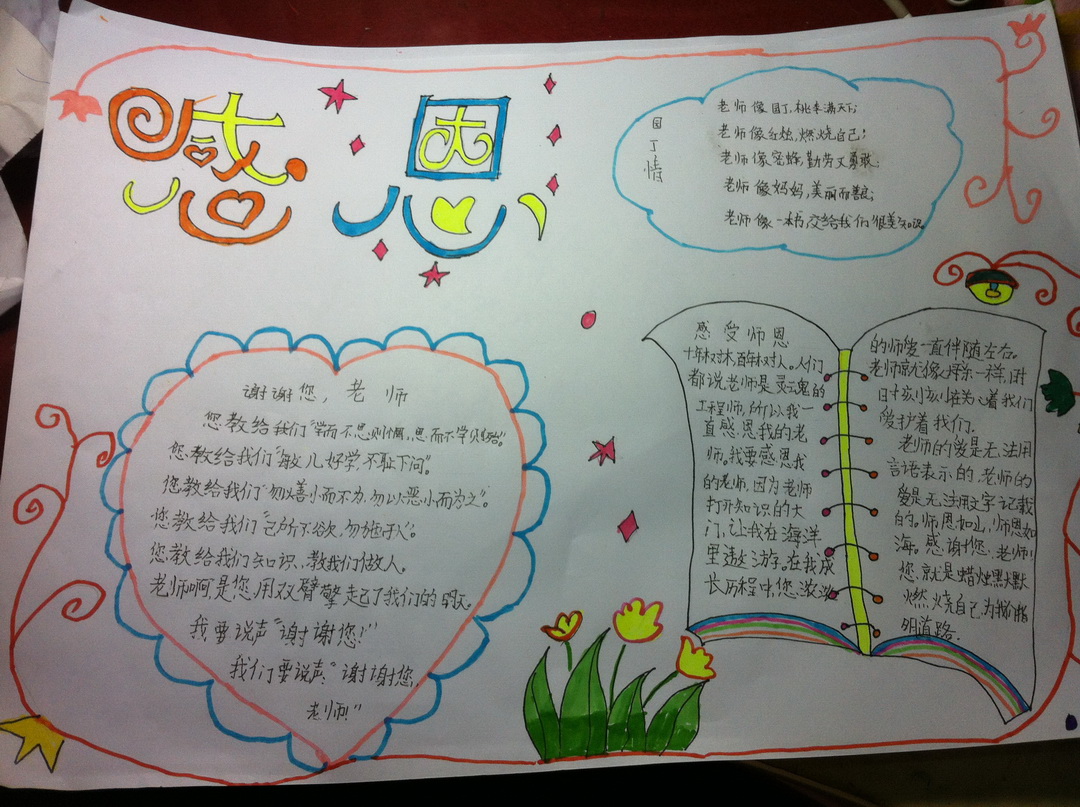 感恩
园丁情
老师像园丁,桃李满天下;
老师像红烛,燃烧自己;
老师像蜜蜂,勤劳又勇敢;
老师像妈妈,美丽而善良;
老师像一本书,交给我们很多知识。
谢谢您,老师
您教给我们“学而不思则惘,思而不学则殆。”
您教给我们“敏儿好学,不耻下问”。
您教给我们“勿以善小而不为,勿以恶小而为之”。
您教给我们“己所不欲,勿施于人”。
您教给我们知识、教我们做人。
老师啊,是您用双臂擎起了我们的明天。
我要说声“谢谢您!”
我们要说声“谢谢您,
老师!”
感受师恩
十年树木,百年树人。人们
都说老师是灵魂的
工程师,所以我一
直感恩我的老
师。我要感恩我
的老师,因为老师
打开知识的大
门,让我在海洋
里遨游。在我成
长历程中,您滋滋
的师爱一直伴随左右。
老师就像母亲一样,时
时刻刻在为着我们
爱护着我们。
老师的爱是无法用
言语表示的,老师的
爱是无法用文字记载
的。师恩如山,师恩如
海。感谢您,老师!
您就是蜡烛默默
燃烧自己,为我们指
明道路.